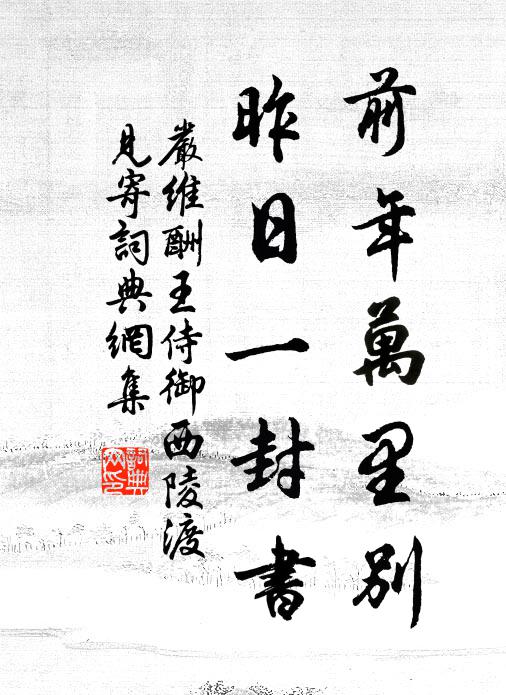 前年萬里別
昨日一封書
嚴維酬王侍御西陵渡
見寄詞典網集
詞典網印